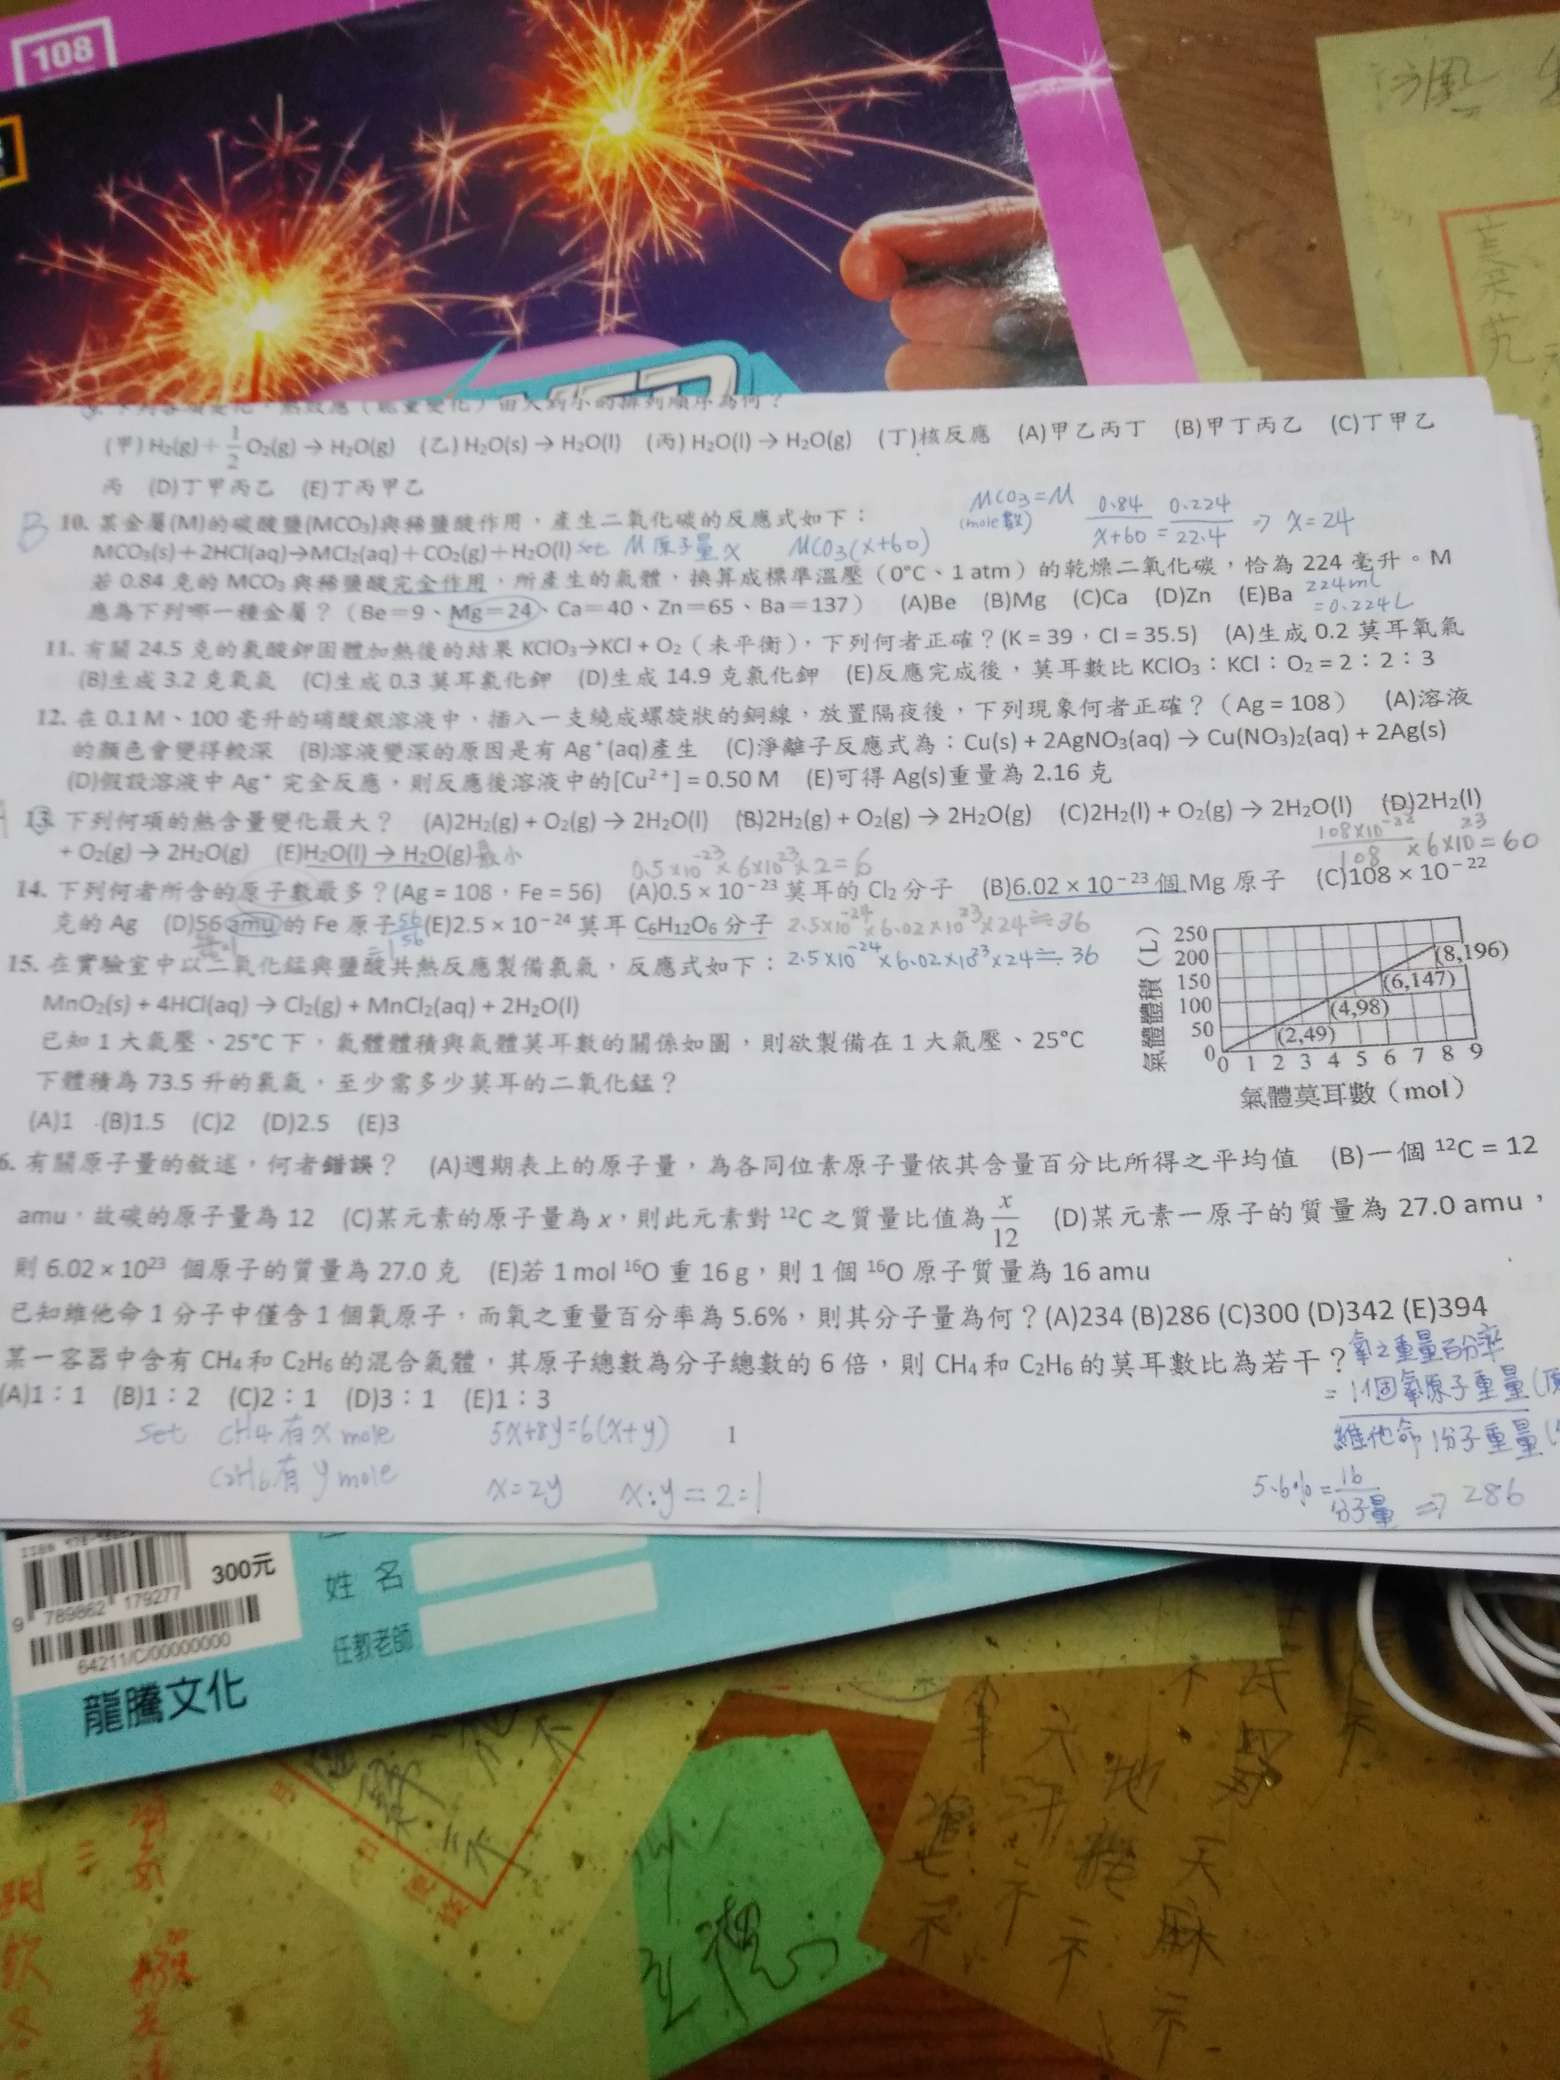 108
(甲) H₂(g) + 1/2 O₂(g) → H₂O(g) (乙) H₂O(s) → H₂O(l) (丙) H₂O(l) → H₂O(g) (丁)核反應 (A)甲乙丙丁 (B)甲丁丙乙 (C)丁甲乙
丙 (D)丁甲丙乙 (E)丁丙甲乙
B 10. 某金屬(M)的碳酸鹽(MCO₃)與稀鹽酸作用，產生二氧化碳的反應式如下：
MCO₃=M
(mole數)
0.84/X+60 = 0.224/22.4 ⇒ X=24
MCO₃(s)+2HCl(aq)→MCl₂(aq)+CO₂(g)+H₂O(l) set M原子量x MCO₃(x+60)
若 0.84 克的 MCO₃ 與稀鹽酸完全作用，所產生的氣體，換算成標準溫壓（0°C、1 atm）的乾燥二氧化碳，恰為 224 毫升。M
應為下列哪一種金屬？（Be=9、Mg=24、Ca=40、Zn=65、Ba=137） (A)Be (B)Mg (C)Ca (D)Zn (E)Ba
224ml
=0.224L
11. 有關 24.5 克的氯酸鉀固體加熱後的結果 KClO₃→KCl + O₂（未平衡），下列何者正確？(K = 39，Cl = 35.5) (A)生成 0.2 莫耳氧氣
(B)生成 3.2 克氧氣 (C)生成 0.3 莫耳氯化鉀 (D)生成 14.9 克氯化鉀 (E)反應完成後，莫耳數比 KClO₃：KCl：O₂ = 2：2：3
12. 在 0.1 M、100 毫升的硝酸銀溶液中，插入一支繞成螺旋狀的銅線，放置隔夜後，下列現象何者正確？（Ag = 108） (A)溶液
的顏色會變得較深 (B)溶液變深的原因是有 Ag⁺(aq)產生 (C)淨離子反應式為：Cu(s) + 2AgNO₃(aq) → Cu(NO₃)₂(aq) + 2Ag(s)
(D)假設溶液中 Ag⁺ 完全反應，則反應後溶液中的[Cu²⁺] = 0.50 M (E)可得 Ag(s)重量為 2.16 克
13. 下列何項的熱含量變化最大？ (A)2H₂(g) + O₂(g) → 2H₂O(l) (B)2H₂(g) + O₂(g) → 2H₂O(g) (C)2H₂(l) + O₂(g) → 2H₂O(l) (D)2H₂(l)
+ O₂(g) → 2H₂O(g) (E)H₂O(l) → H₂O(g) 最小
0.5×10⁻²³×6×10²³×2=6
108×10⁻²²/108 ×6×10²³=60
14. 下列何者所含的原子數最多？(Ag = 108，Fe = 56) (A)0.5 × 10⁻²³ 莫耳的 Cl₂ 分子 (B)6.02 × 10⁻²³ 個 Mg 原子 (C)108 × 10⁻²²
克的 Ag (D)56 amu 的 Fe 原子 56/56 =1 (E)2.5 × 10⁻²⁴ 莫耳 C₆H₁₂O₆ 分子 2.5×10⁻²⁴×6.02×10²³×24≒36
15. 在實驗室中以二氧化錳與鹽酸共熱反應製備氯氣，反應式如下： 2.5×10⁻²⁴×6.02×10²³×24≒36
MnO₂(s) + 4HCl(aq) → Cl₂(g) + MnCl₂(aq) + 2H₂O(l)
已知 1 大氣壓、25°C 下，氣體體積與氣體莫耳數的關係如圖，則欲製備在 1 大氣壓、25°C
下體積為 73.5 升的氯氣，至少需多少莫耳的二氧化錳？
(A)1 (B)1.5 (C)2 (D)2.5 (E)3
氣體體積（L）
250
200
150
100
50
0
(8,196)
(6,147)
(4,98)
(2,49)
0 1 2 3 4 5 6 7 8 9
氣體莫耳數（mol）
6. 有關原子量的敘述，何者錯誤？ (A)週期表上的原子量，為各同位素原子量依其含量百分比所得之平均值 (B)一個 ¹²C = 12
amu，故碳的原子量為 12 (C)某元素的原子量為 x，則此元素對 ¹²C 之質量比值為 x/12 (D)某元素一原子的質量為 27.0 amu，
則 6.02 × 10²³ 個原子的質量為 27.0 克 (E)若 1 mol ¹⁶O 重 16 g，則 1 個 ¹⁶O 原子質量為 16 amu
已知維他命 1 分子中僅含 1 個氧原子，而氧之重量百分率為 5.6%，則其分子量為何？(A)234 (B)286 (C)300 (D)342 (E)394
某一容器中含有 CH₄ 和 C₂H₆ 的混合氣體，其原子總數為分子總數的 6 倍，則 CH₄ 和 C₂H₆ 的莫耳數比為若干？
(A)1：1 (B)1：2 (C)2：1 (D)3：1 (E)1：3
氧之重量百分率
= 1個氧原子重量
維他命1分子重量
5.6%=16/分子量 ⇒ 286
set CH₄有x mole 5x+8y=6(x+y)
C₂H₆有y mole x=2y x:y=2:1
1
300元
9 789862 179277
64211/C/00000000
龍騰文化
姓 名
任教老師